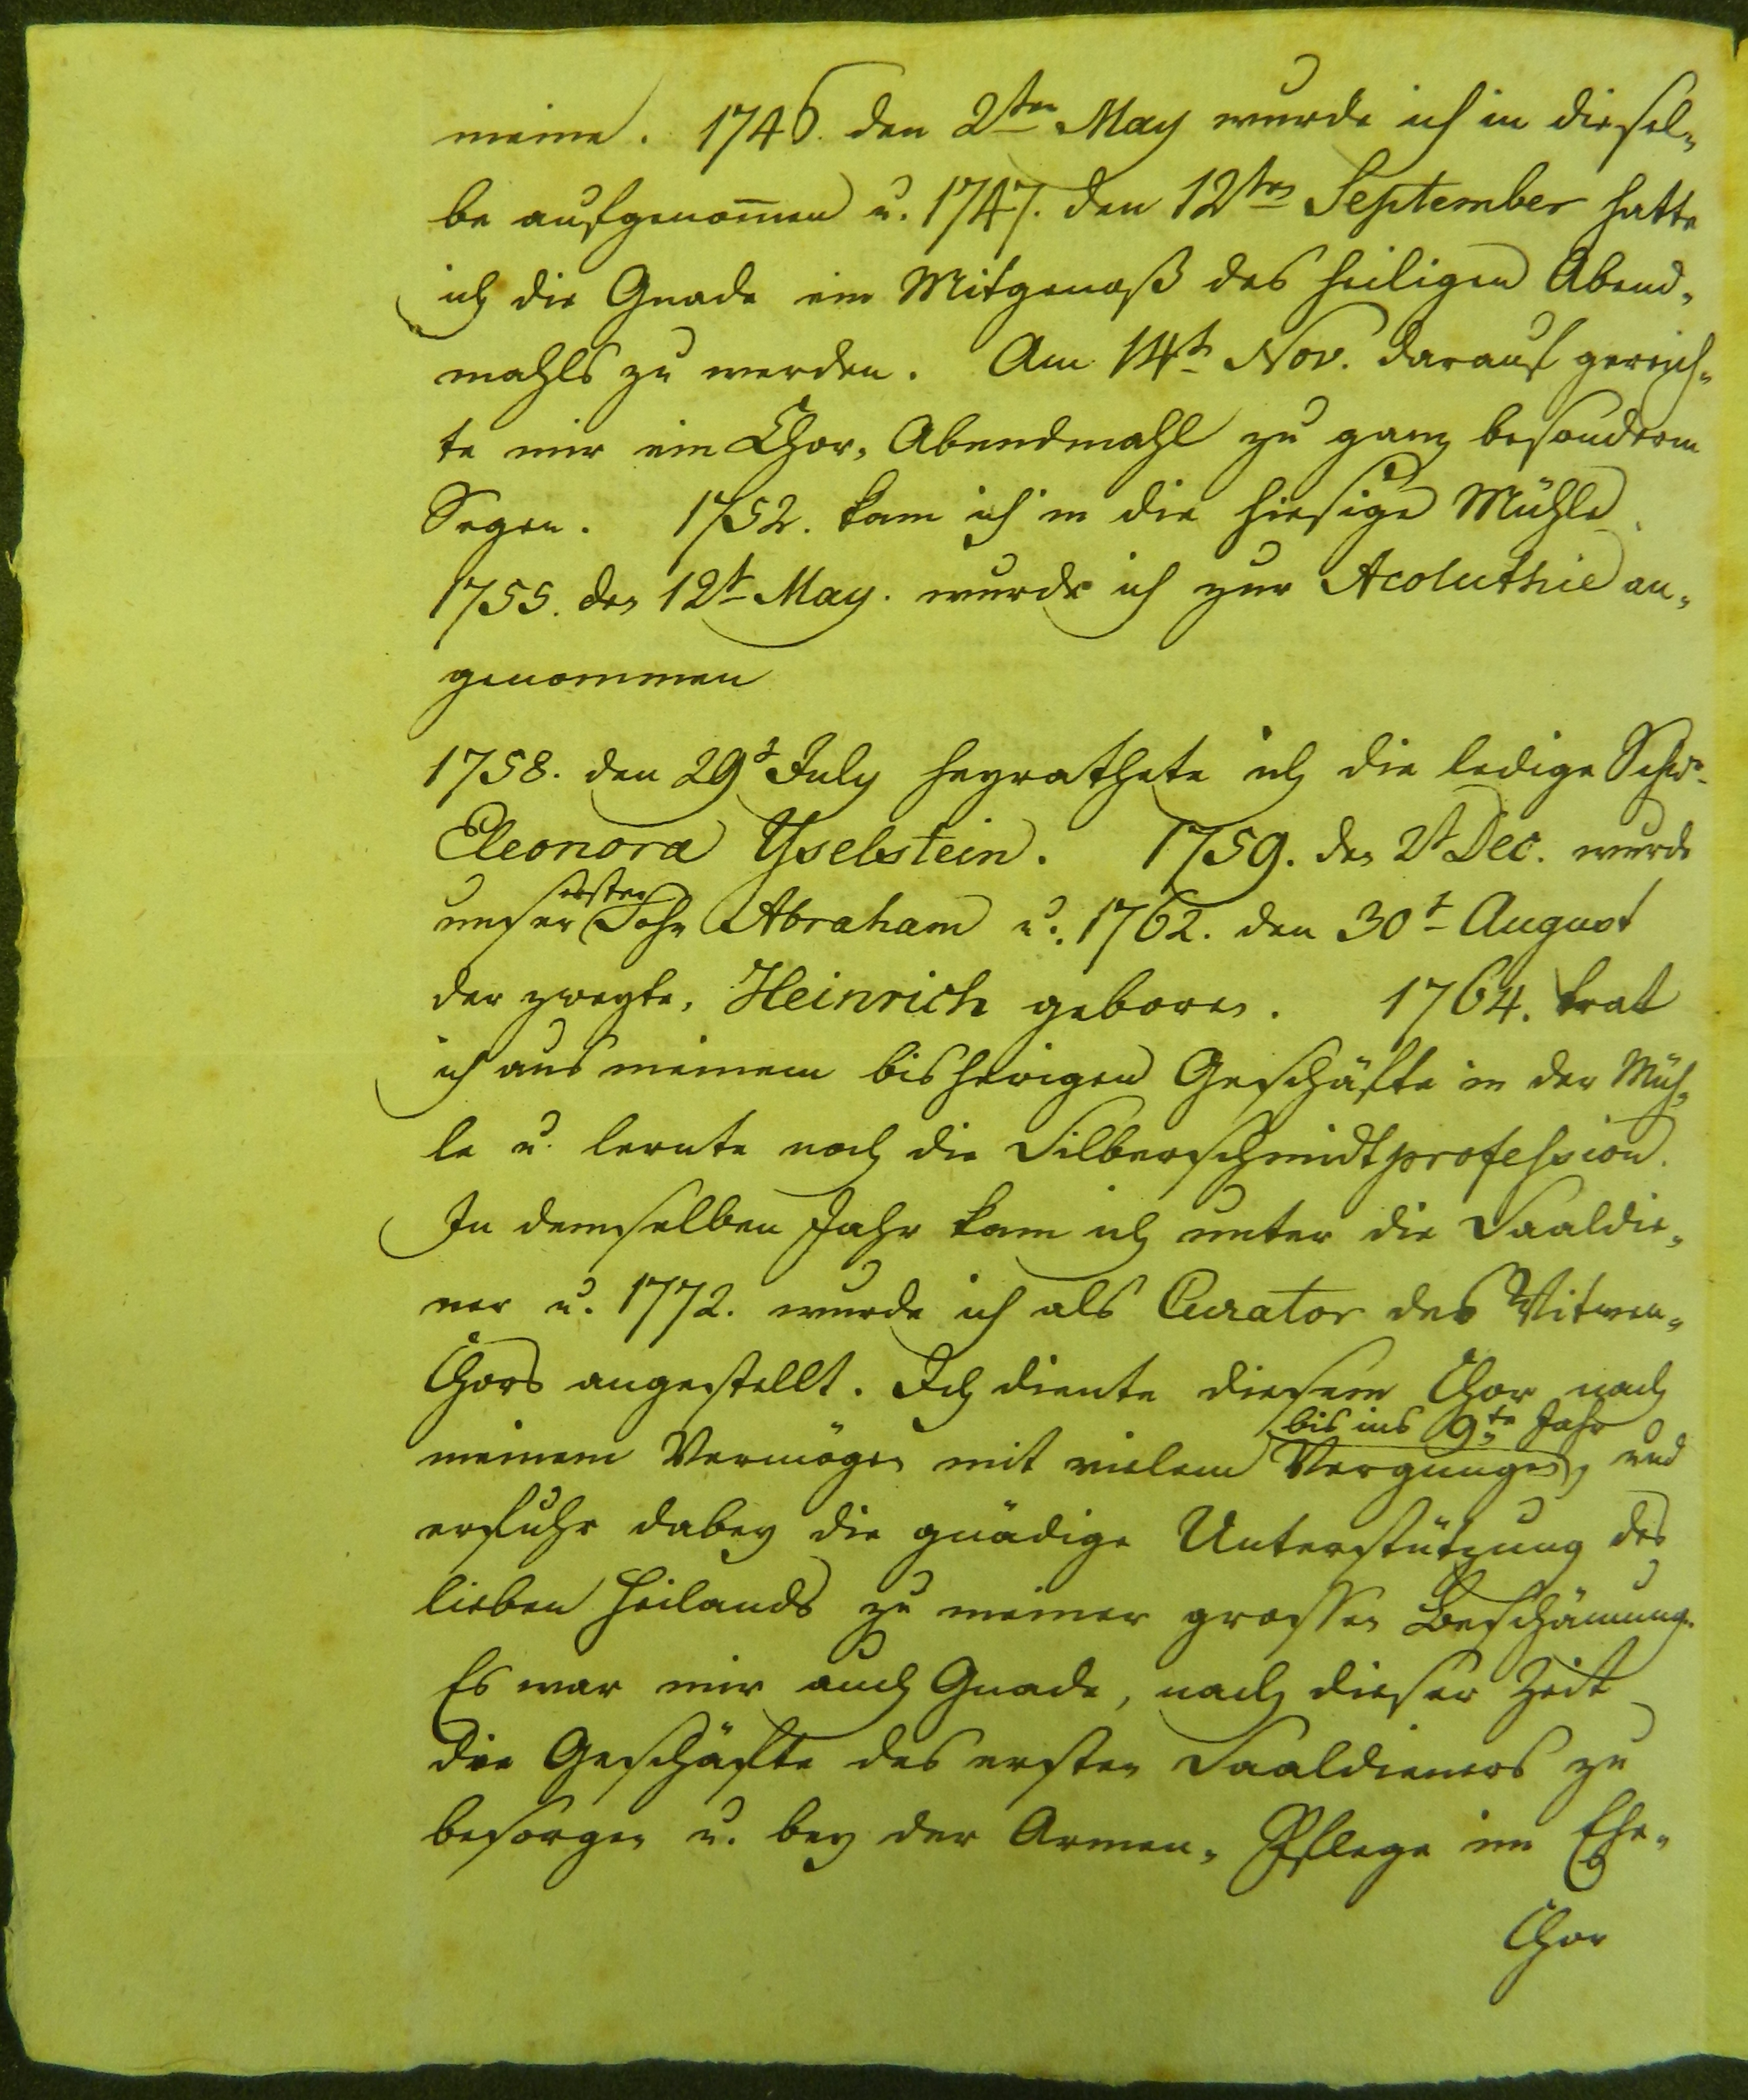 meine. 1746. den 2ten May wurde ich in diesel„
be aufgenom̅en u. 1747. den 12ten September hatte
ich die Gnade ein Mitgenoß des heiligen Abend„
mahls zu werden. Am 14t Nov. darauf gereich„
te mir ein Chor„ Abendmahl zu ganz besonderm
Segen. 1752. kam ich in die hiesige Mühle.
1755. den 12t May. wurde ich zur Acoluthie an„
genommen
1758. den 29t July heyrathete ich die ledige Schw.
Eleonora Yselstein. 1759. den 2t Dec. wurde
unser erster Sohn Abraham u. 1762. den 30t August
der zweyte, Heinrich geboren. 1764. trat
ich aus meinem bisherigen Geschäfte in der Müh„
le u. lernte noch die Silberschmidtprofession.
In demselben Jahr kam ich unter die Saaldie„
ner u. 1772. wurde ich als Curator des Witwen„
Chors angestellt. Ich diente diesem Chor nach
bis ins 9te Jahr
meinem Vermögen mit vielem Vergnügen, und
erfuhr dabey die gnädige Unterstützung des
lieben Heilands zu meiner grossen Beschämung.
Es war mir auch Gnade, nach dieser Zeit
die Geschäfte des ersten Saaldieners zu
besorgen u. bey der Armen„ Pflege im Ehe„
Chor